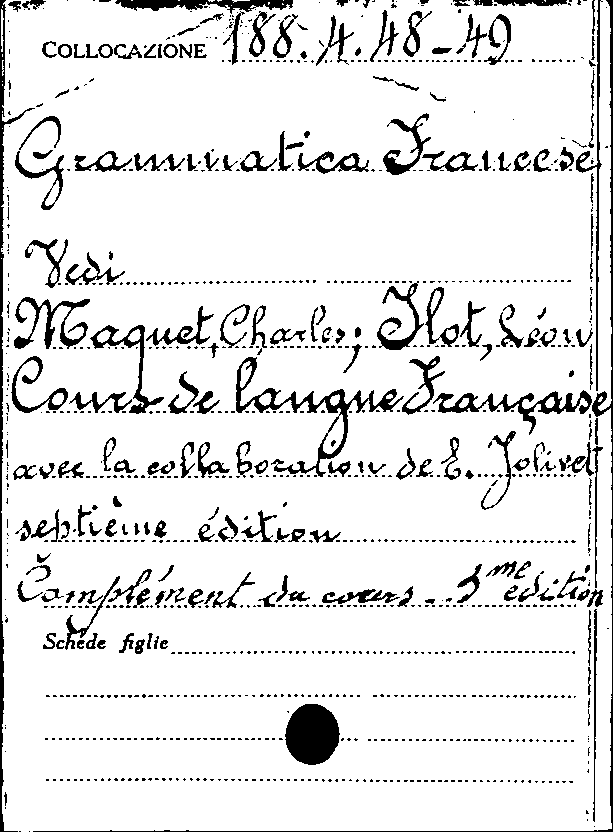 COLLOCAZIONE 188.4.48-49
Grammatica Francese
Vedi
Maquet, Charles; Flot, Léon
Cours de langue Française
avec la collaboration de E. Jolivet
septième édition
Complément du cours - 3me édition
Schede figlie